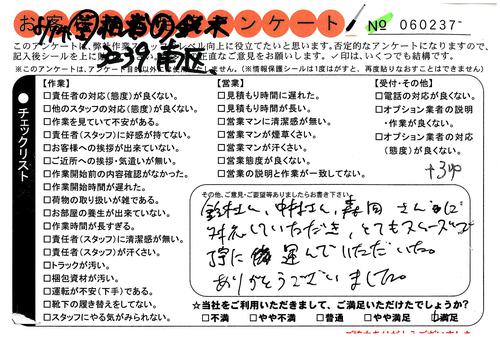 お客
アンケート
No 060237
このアンケートは、弊社作業スタッフのレベル向上に役立てたいと思います。否定的なアンケートになりますので、
記入後シールを上に
直なご意見をお願いします。✓印はいくつでも結構です。
※このアンケートは、アンケート目的以外には使用いたしません。(※情報保護シールは1度はがすと、再度貼りなおすことはできません)
チェックリスト
【作業】
□責任者の対応(態度)が良くない。
□他のスタッフの対応(態度)が良くない。
□作業を見ていて不安がある。
□責任者(スタッフ)に好感が持てない。
□お客様への挨拶が出来ていない。
□ご近所への挨拶・気遣いが無い。
□作業開始前の内容確認がなかった。
□作業開始時間が遅れた。
□荷物の取り扱いが雑である。
□お部屋の養生が出来ていない。
□作業時間が長すぎる。
□責任者(スタッフ)に清潔感が無い。
□責任者(スタッフ)が汗くさい。
□トラックが汚い。
□梱包資材が汚い。
□運転が不安(下手)である。
□靴下の履き替えをしてない。
□スタッフにやる気がみられない。
【営業】
□見積もり時間に遅れた。
□見積もり時間が長い。
□営業マンに清潔感が無い。
□営業マンが煙草くさい。
□営業マンが汗くさい。
□営業態度が良くない。
□営業の説明と作業が一致してない。
【受付・その他】
□電話の対応が良くない。
□オプション業者の説明
・作業が良くない。
□オプション業者の対応
(態度)が良くない。
その他、ご意見・ご要望等ありましたらお書き下さい。
対応していただき、とてもスムーズつ
丁寧に 運んでいただいた。
ありがとうございました。
☆当社をご利用いただきまして、ご満足いただけたでしょうか?
□不満 □やや不満 □普通 □やや満足 □満足